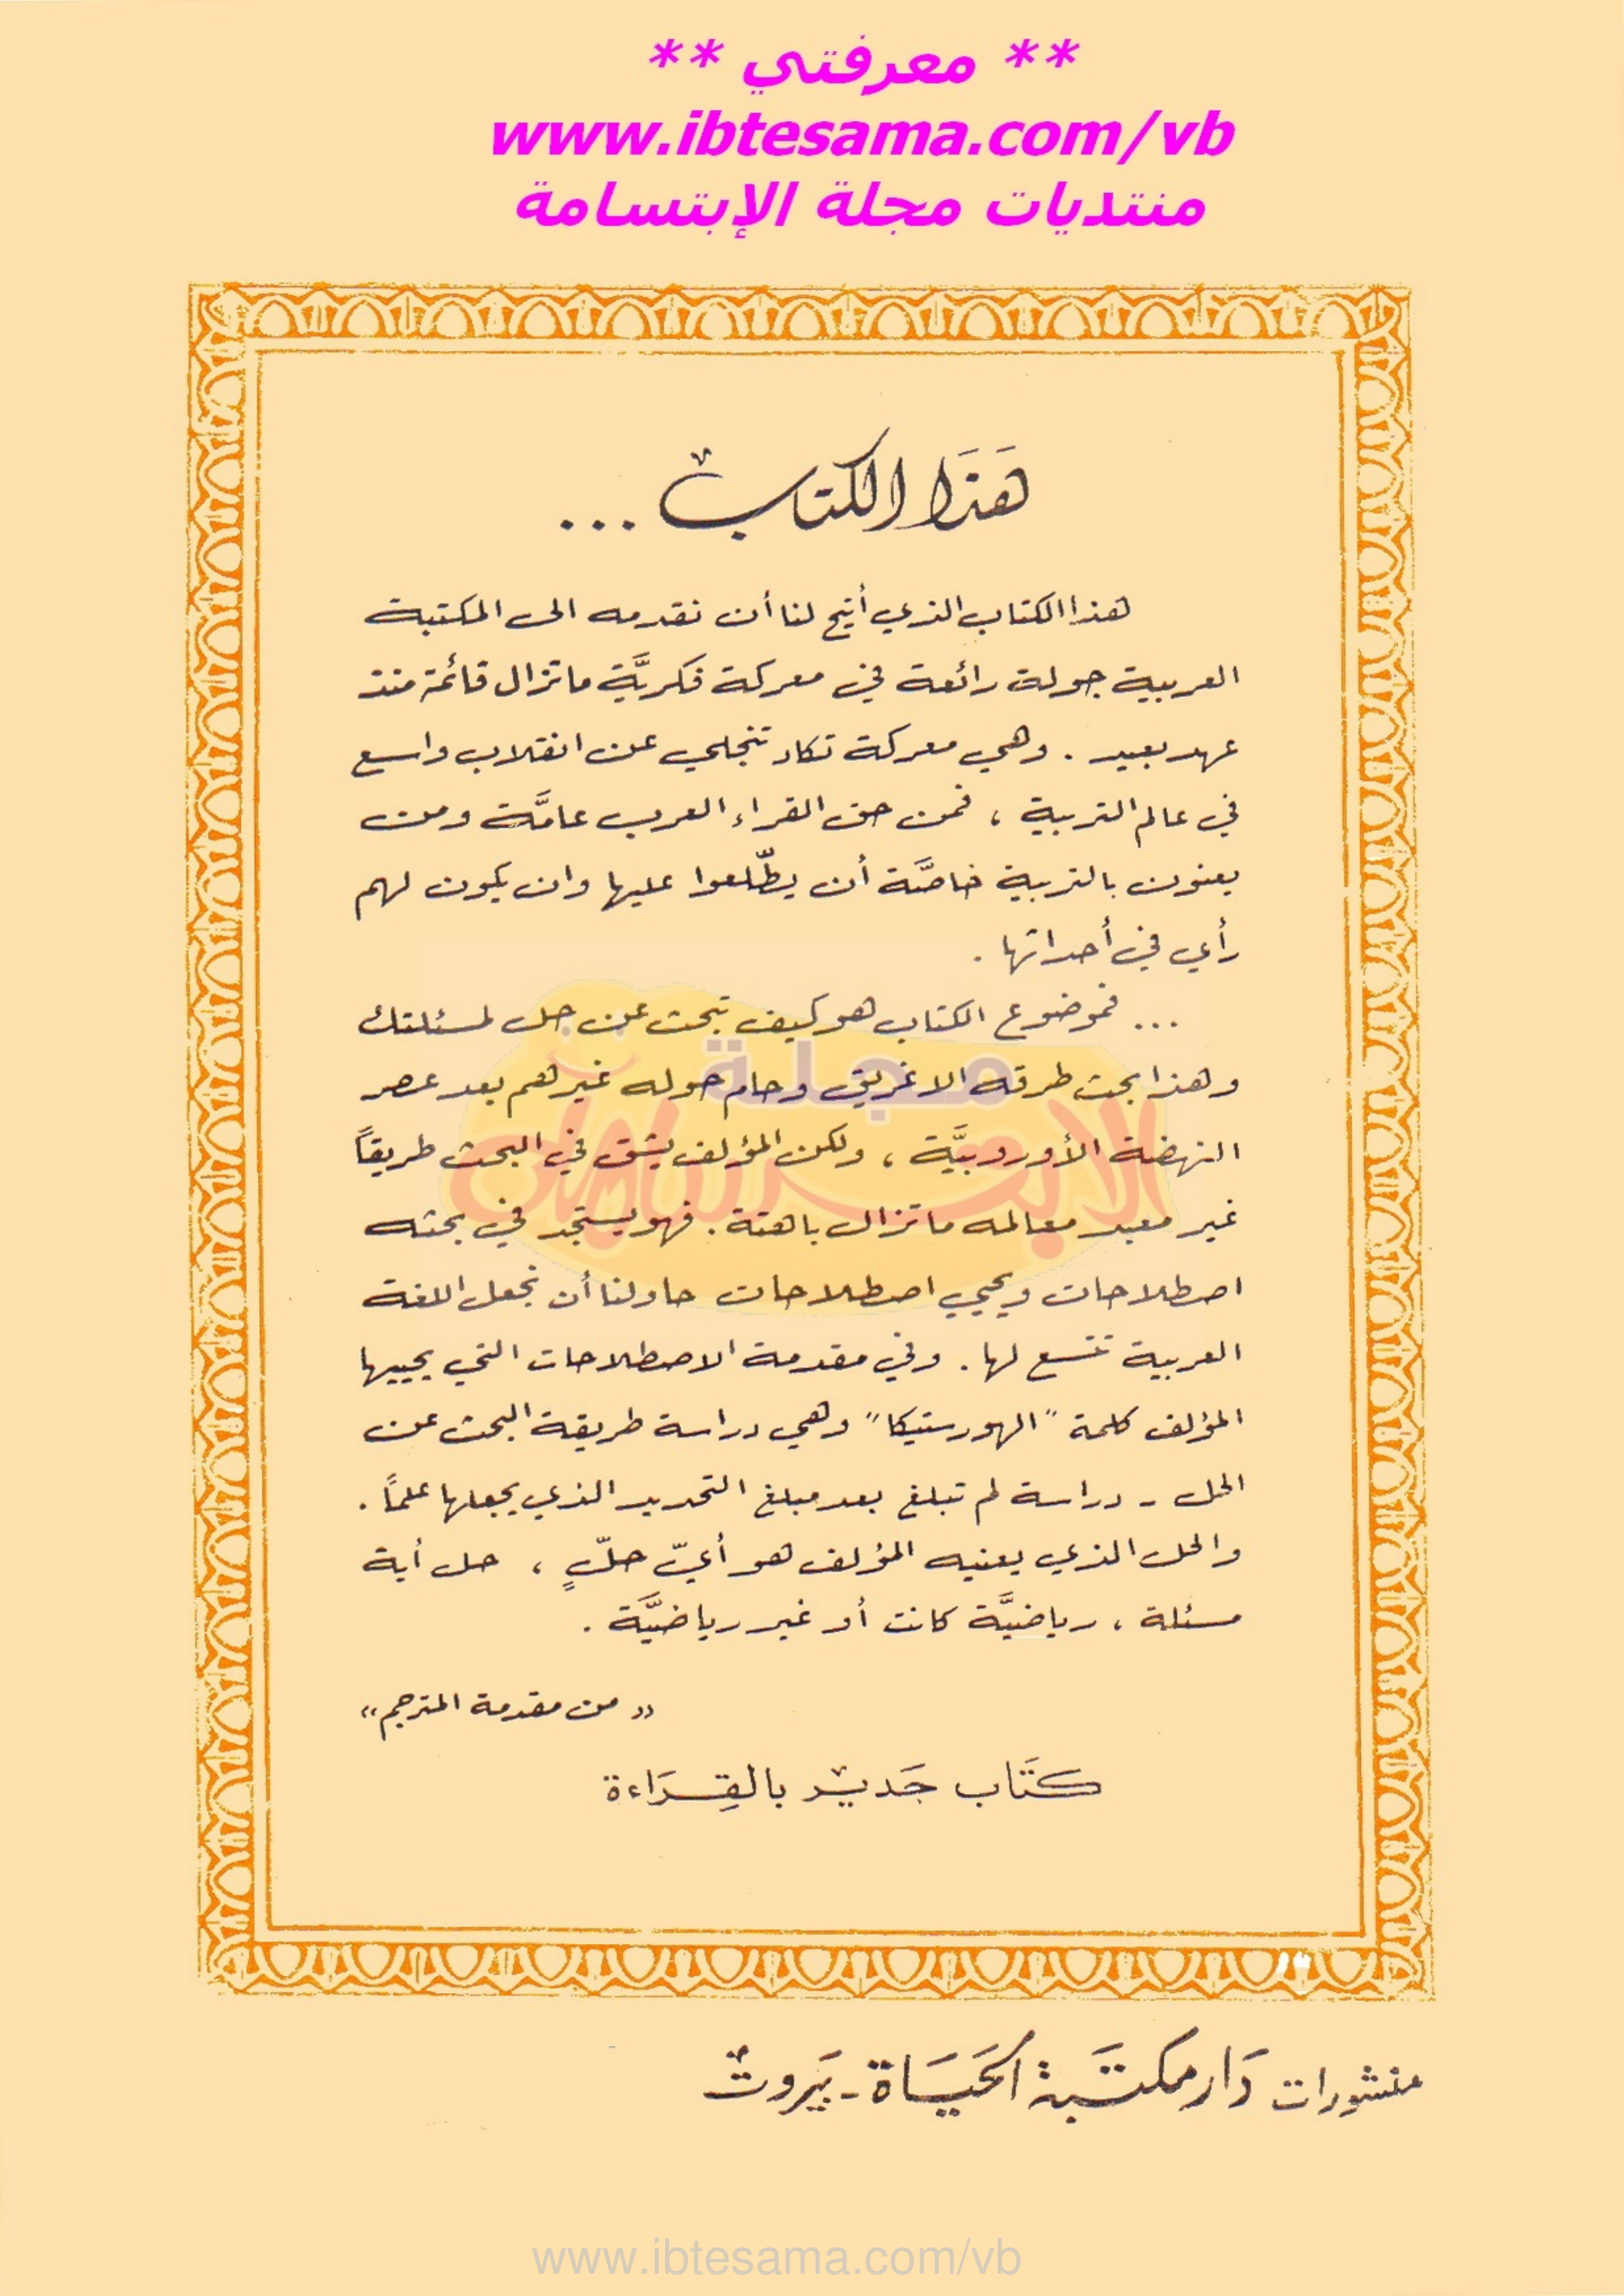 ** معرفتي **
www.ibtesama.com/vb
منتديات مجلة الإبتسامة
هَذَا الكتاب ...
هذا الكتاب الذي أتيح لنا أن نقدمه الى المكتبة
العربية جولة رائعة في معركة فكريَّة ما تزال قائمة منذ
عهد بعيد . وهي معركة تكاد تنجلي عن انقلاب واسع
في عالم التربية ، فمن حق القراء العرب عامَّة ومن
يعنون بالتربية خاصَّة أن يطّلعوا عليها وان يكون لهم
رأي في أحداثها .
... فموضوع الكتاب هو كيف تبحث عن حل لمسئلتك
وهذا بحث طرقه الاغريق وحام حوله غيرهم بعد عصر
النهضة الأوروبيَّة ، ولكن المؤلف يشق في البحث طريقاً
غير معبد معالمه ما تزال باهتة . فهو يستجد في بحثه
اصطلاحات ويحيي اصطلاحات حاولنا أن نجعل اللغة
العربية تتسع لها . وفي مقدمة الاصطلاحات التي يحييها
المؤلف كلمة "الهورستيكا" وهي دراسة طريقة البحث عن
الحل - دراسة لم تبلغ بعد مبلغ التحديد الذي يجعلها علماً .
والحل الذي يعنيه المؤلف هو أيّ حلّ ، حل أية
مسئلة ، رياضيَّة كانت أو غير رياضيَّة .
« من مقدمة المترجم »
كتَاب جَدير بالقِرَاءة
مجلة
الابتسامة
منشورات دَار مكتَبة الحَيَاة - بَيروت
www.ibtesama.com/vb